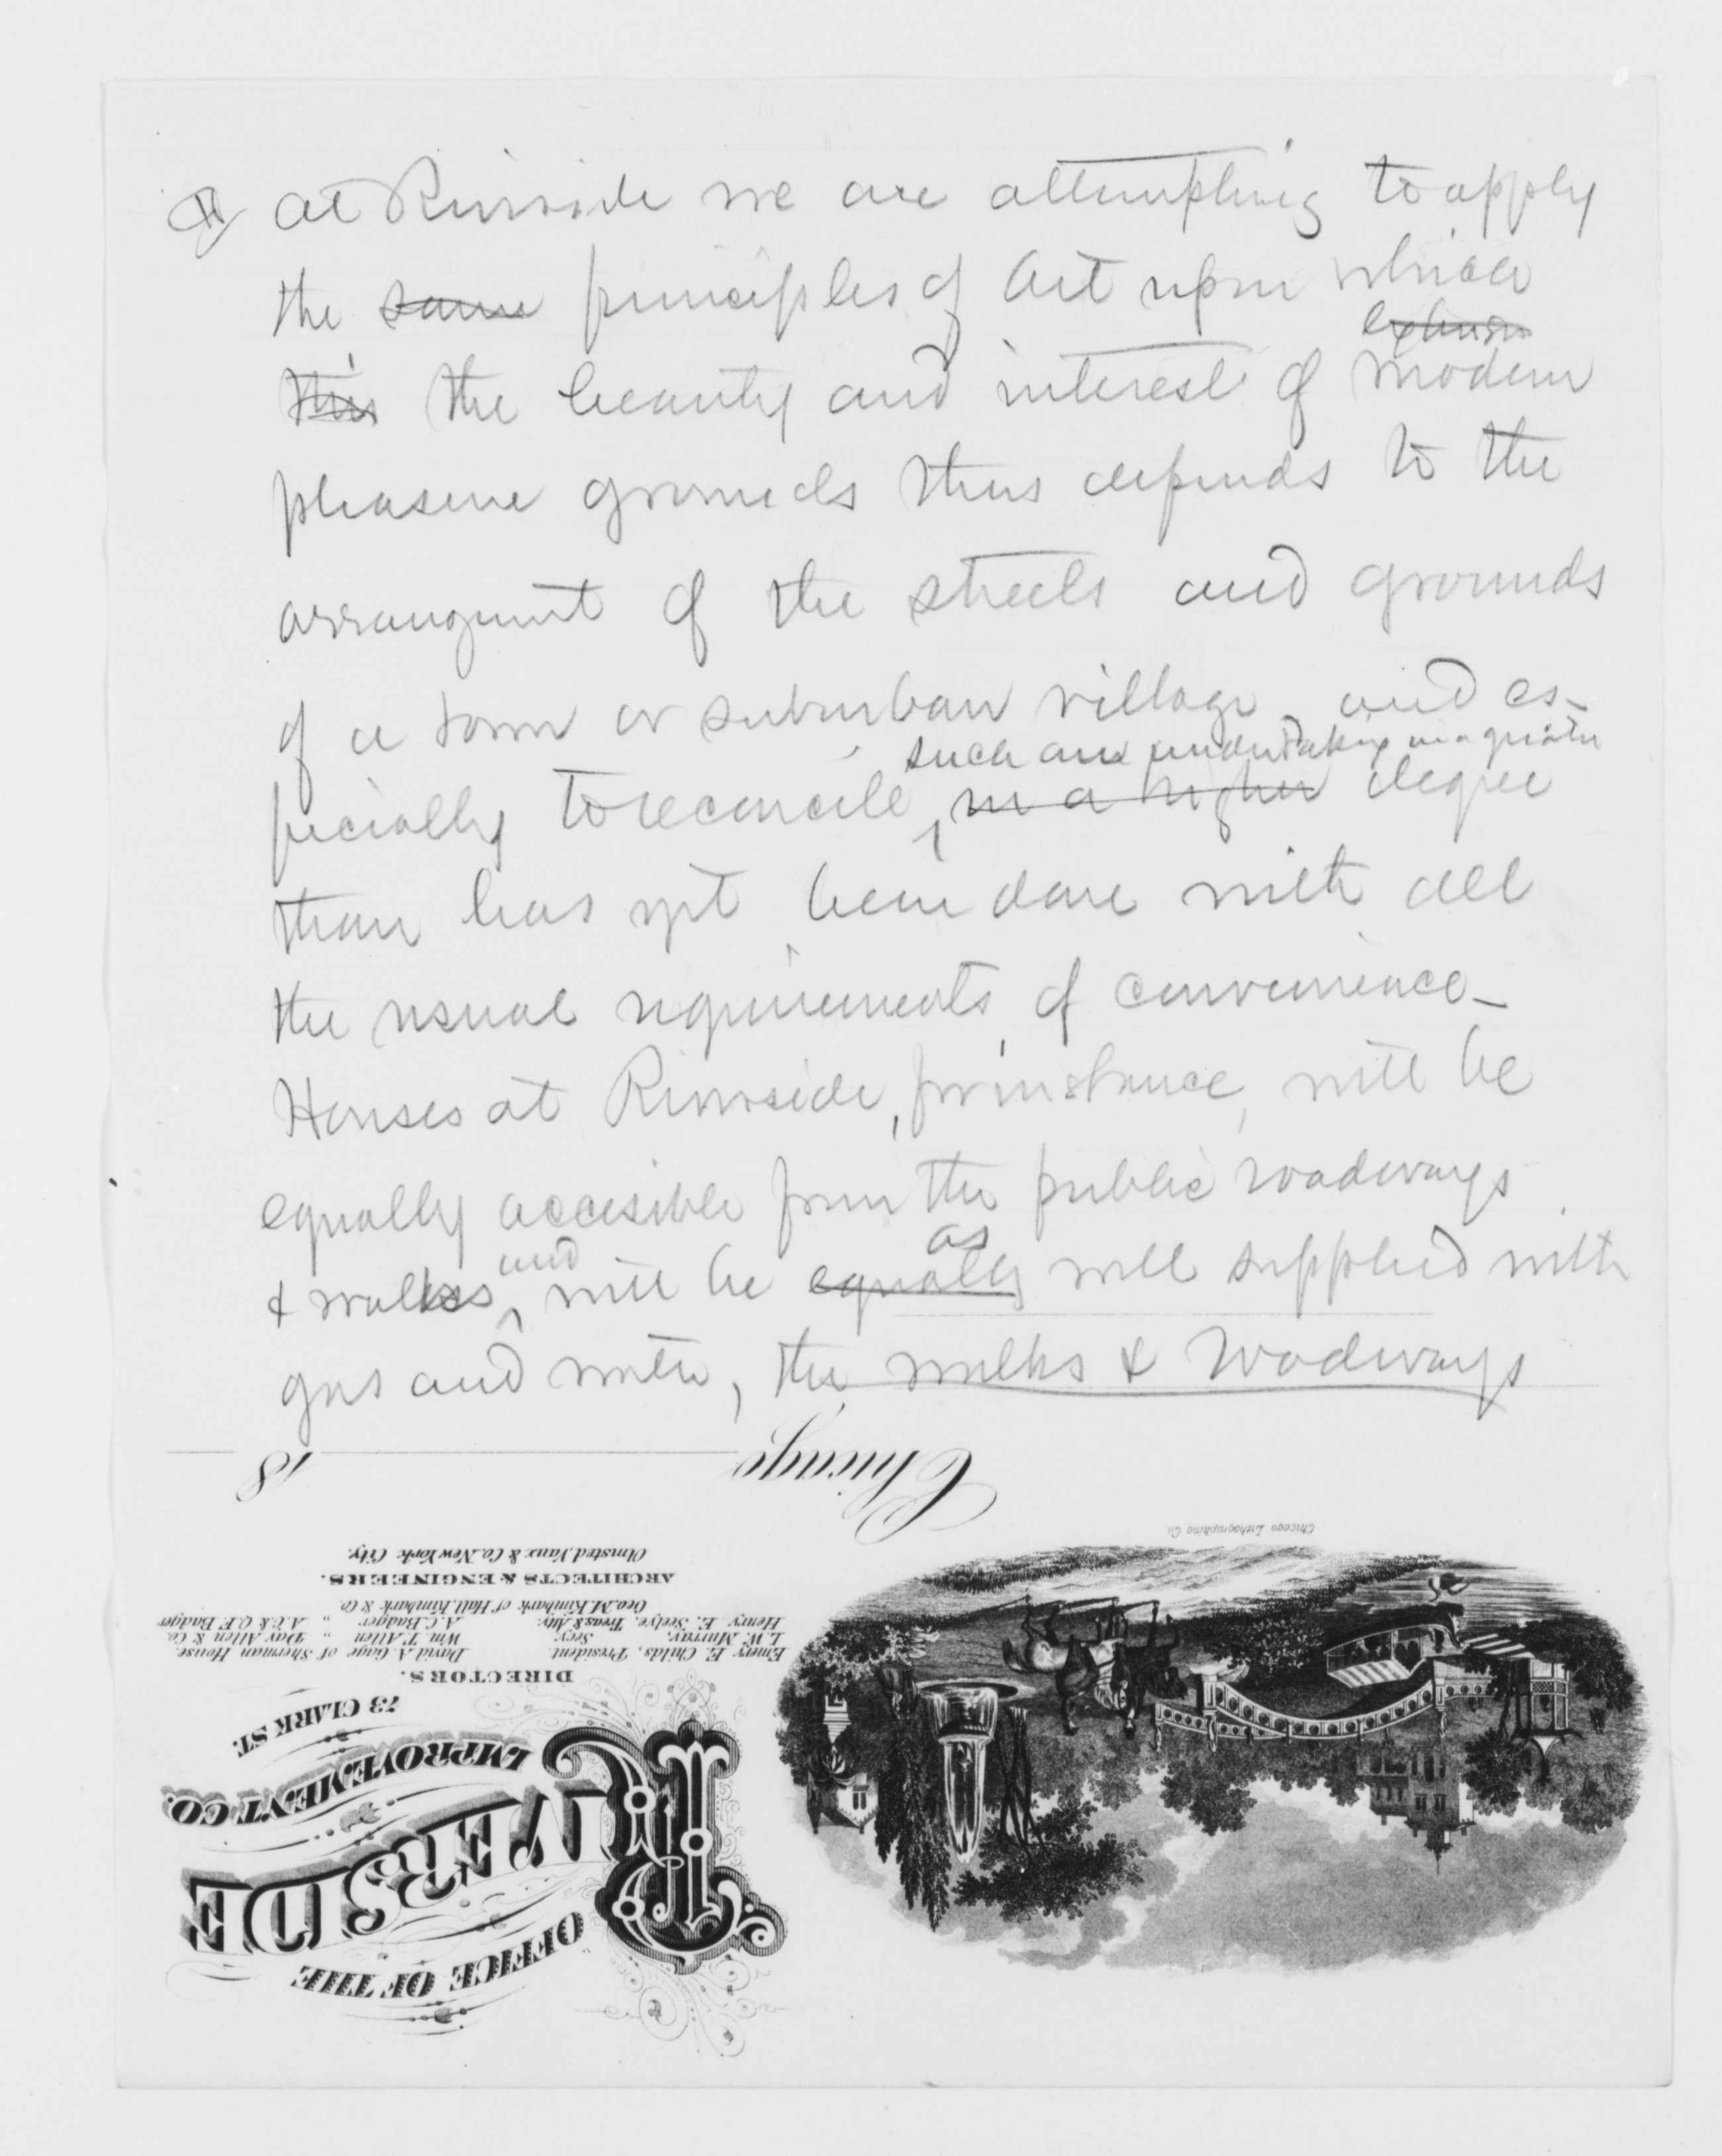 at Riverside we are attempting to apply
the same principles of Art upon which
extensive
this the beauty and interest of modern
pleasure grounds thus depends to the
arrangment of the streets and grounds
of a town or suburban village and es-
such an undertaking in a greater
pecially to reconcile in a higher degree
than has yet been done with all
the usual requirements of convenience-
Houses at Riverside, for instance, will be
equally accesible from the public roadways
and as
& walks will be equally well supplied with
gas and water, the walks & roadways
OFFICE OF THE
RIVERSIDE
IMPROVEMENT CO.
73 CLARK ST.
DIRECTORS.
Emery E. Childs, President. David A. Gage of Sherman House.
L.W. Murray, Secy. Wm. T. Allen " Day Allen & Co.
Henry E. Seelye, Treas & Atty. A.C. Badger. " A.C. & O.F. Badger
Geo. M. Kimbark of Hall Kimbark & Co.
ARCHITECTS & ENGINEERS.
Olmsted, Vaux & Co. New York City.
Chicago Lithographing Co
Chicago 18